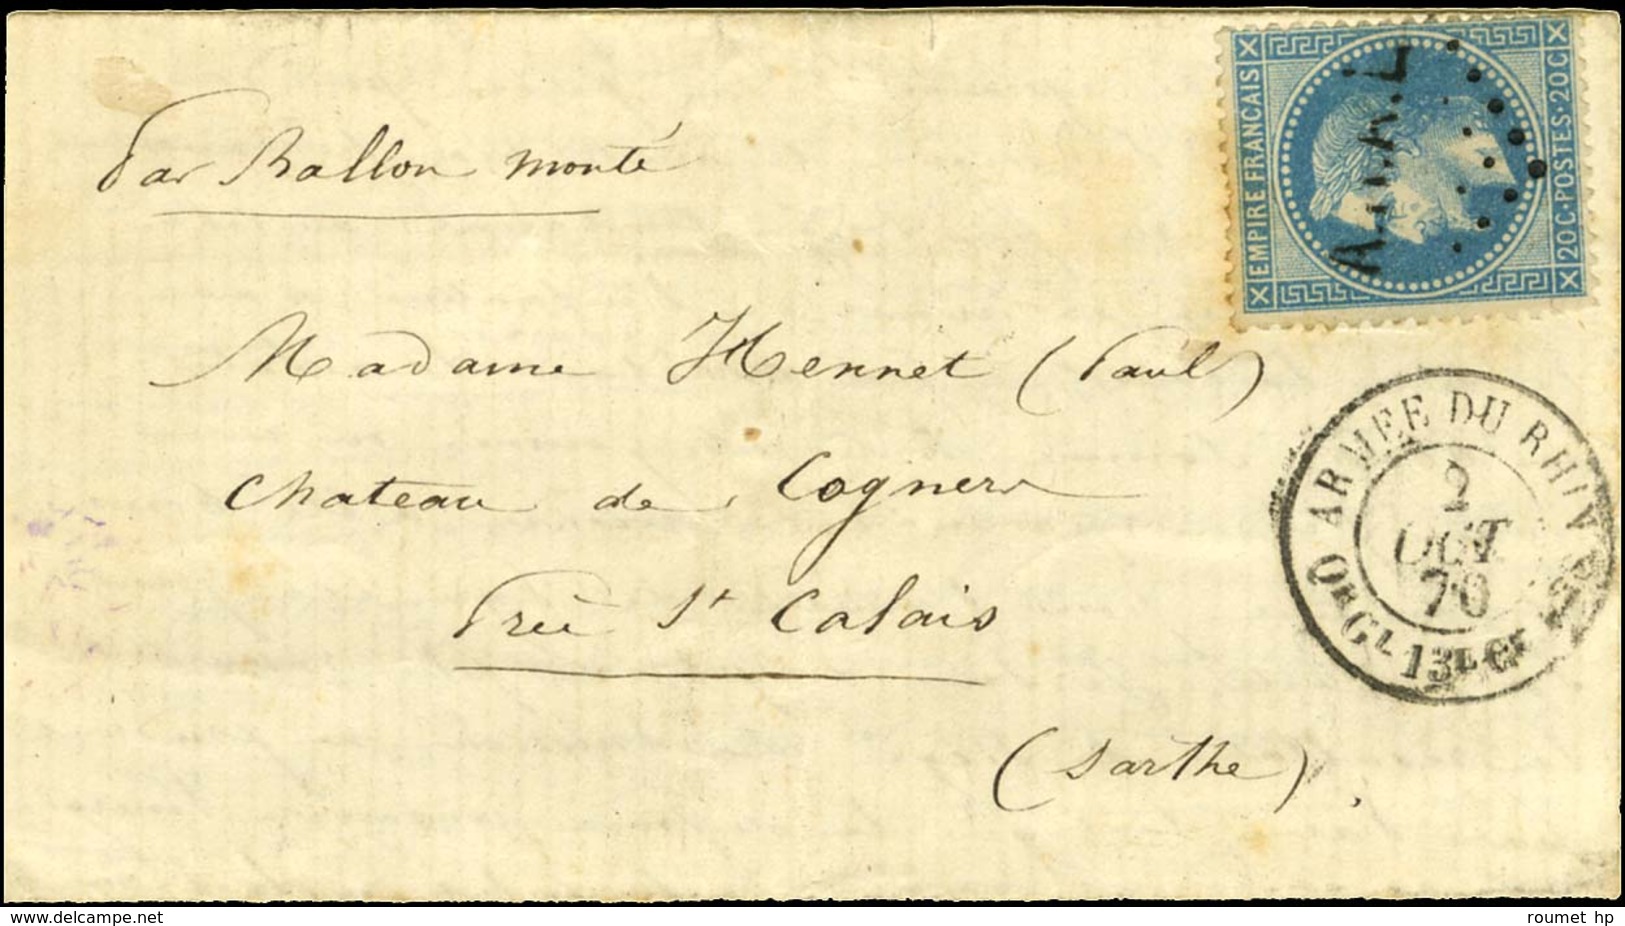 Par Ballon monté
EMPIRE FRANCAIS
20 C·POSTES·20 C
Madame Hennet (Paul)
Chateau de Cogners
ARMEE DU RHIN
2
OCT
70
Qr GL 13E
Près St Calais
(Sarthe).
delcampe.net
roumet hp